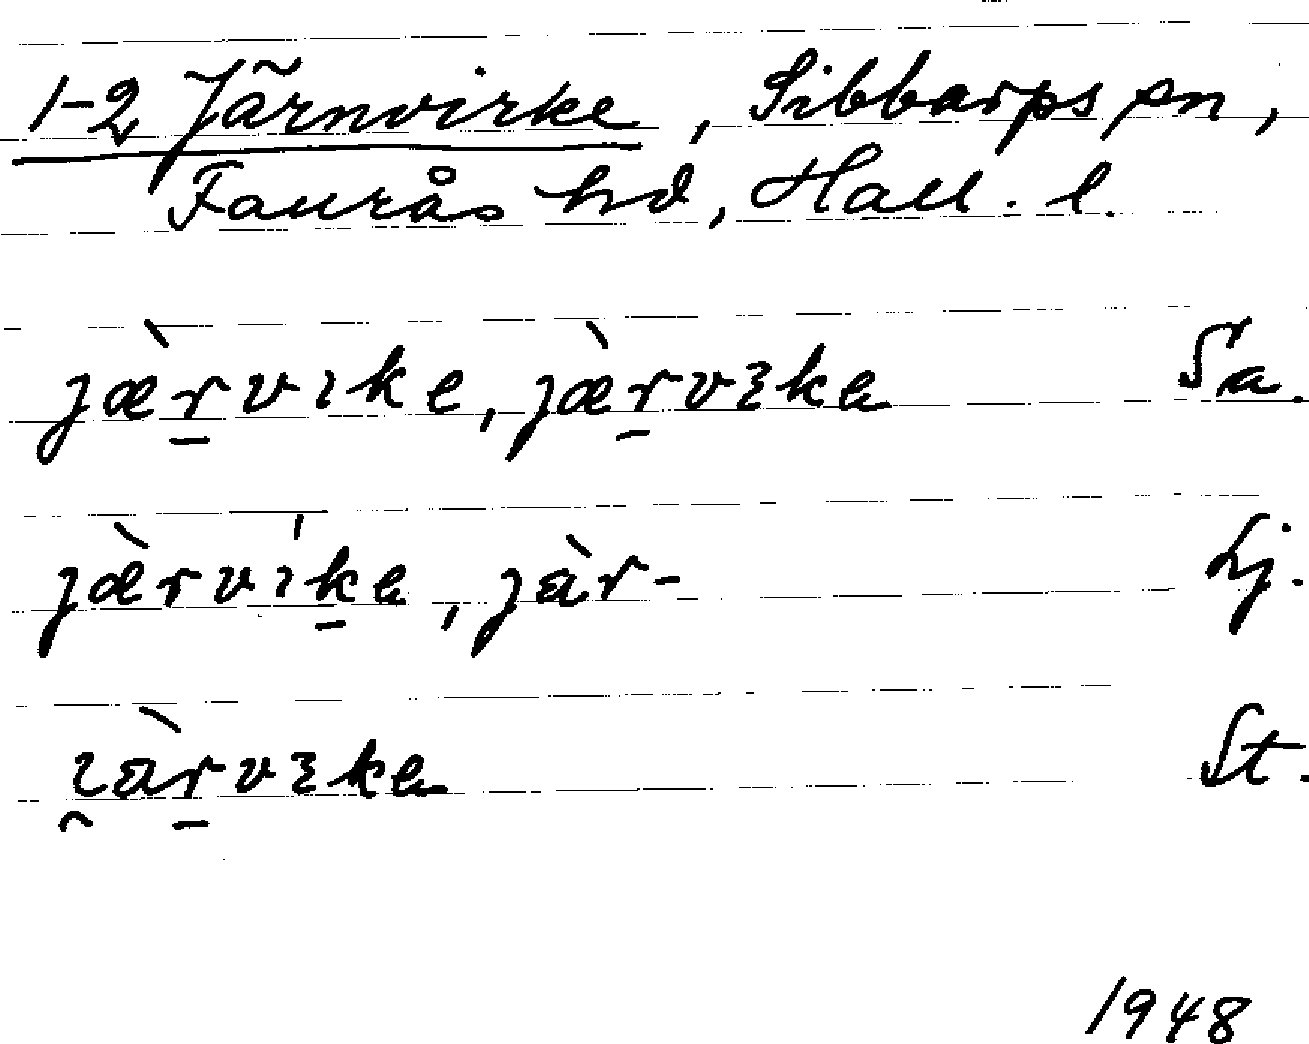 1-2 Järnvirke, Sibbarps sn,
Faurås hd, Hall. l.
jæ̀r̲vıke, jæ̀r̲vɛke Sa.
jæ̀rvı́k̲e, jàr- Lj.
ı̯àr̲vɛke St.
1948